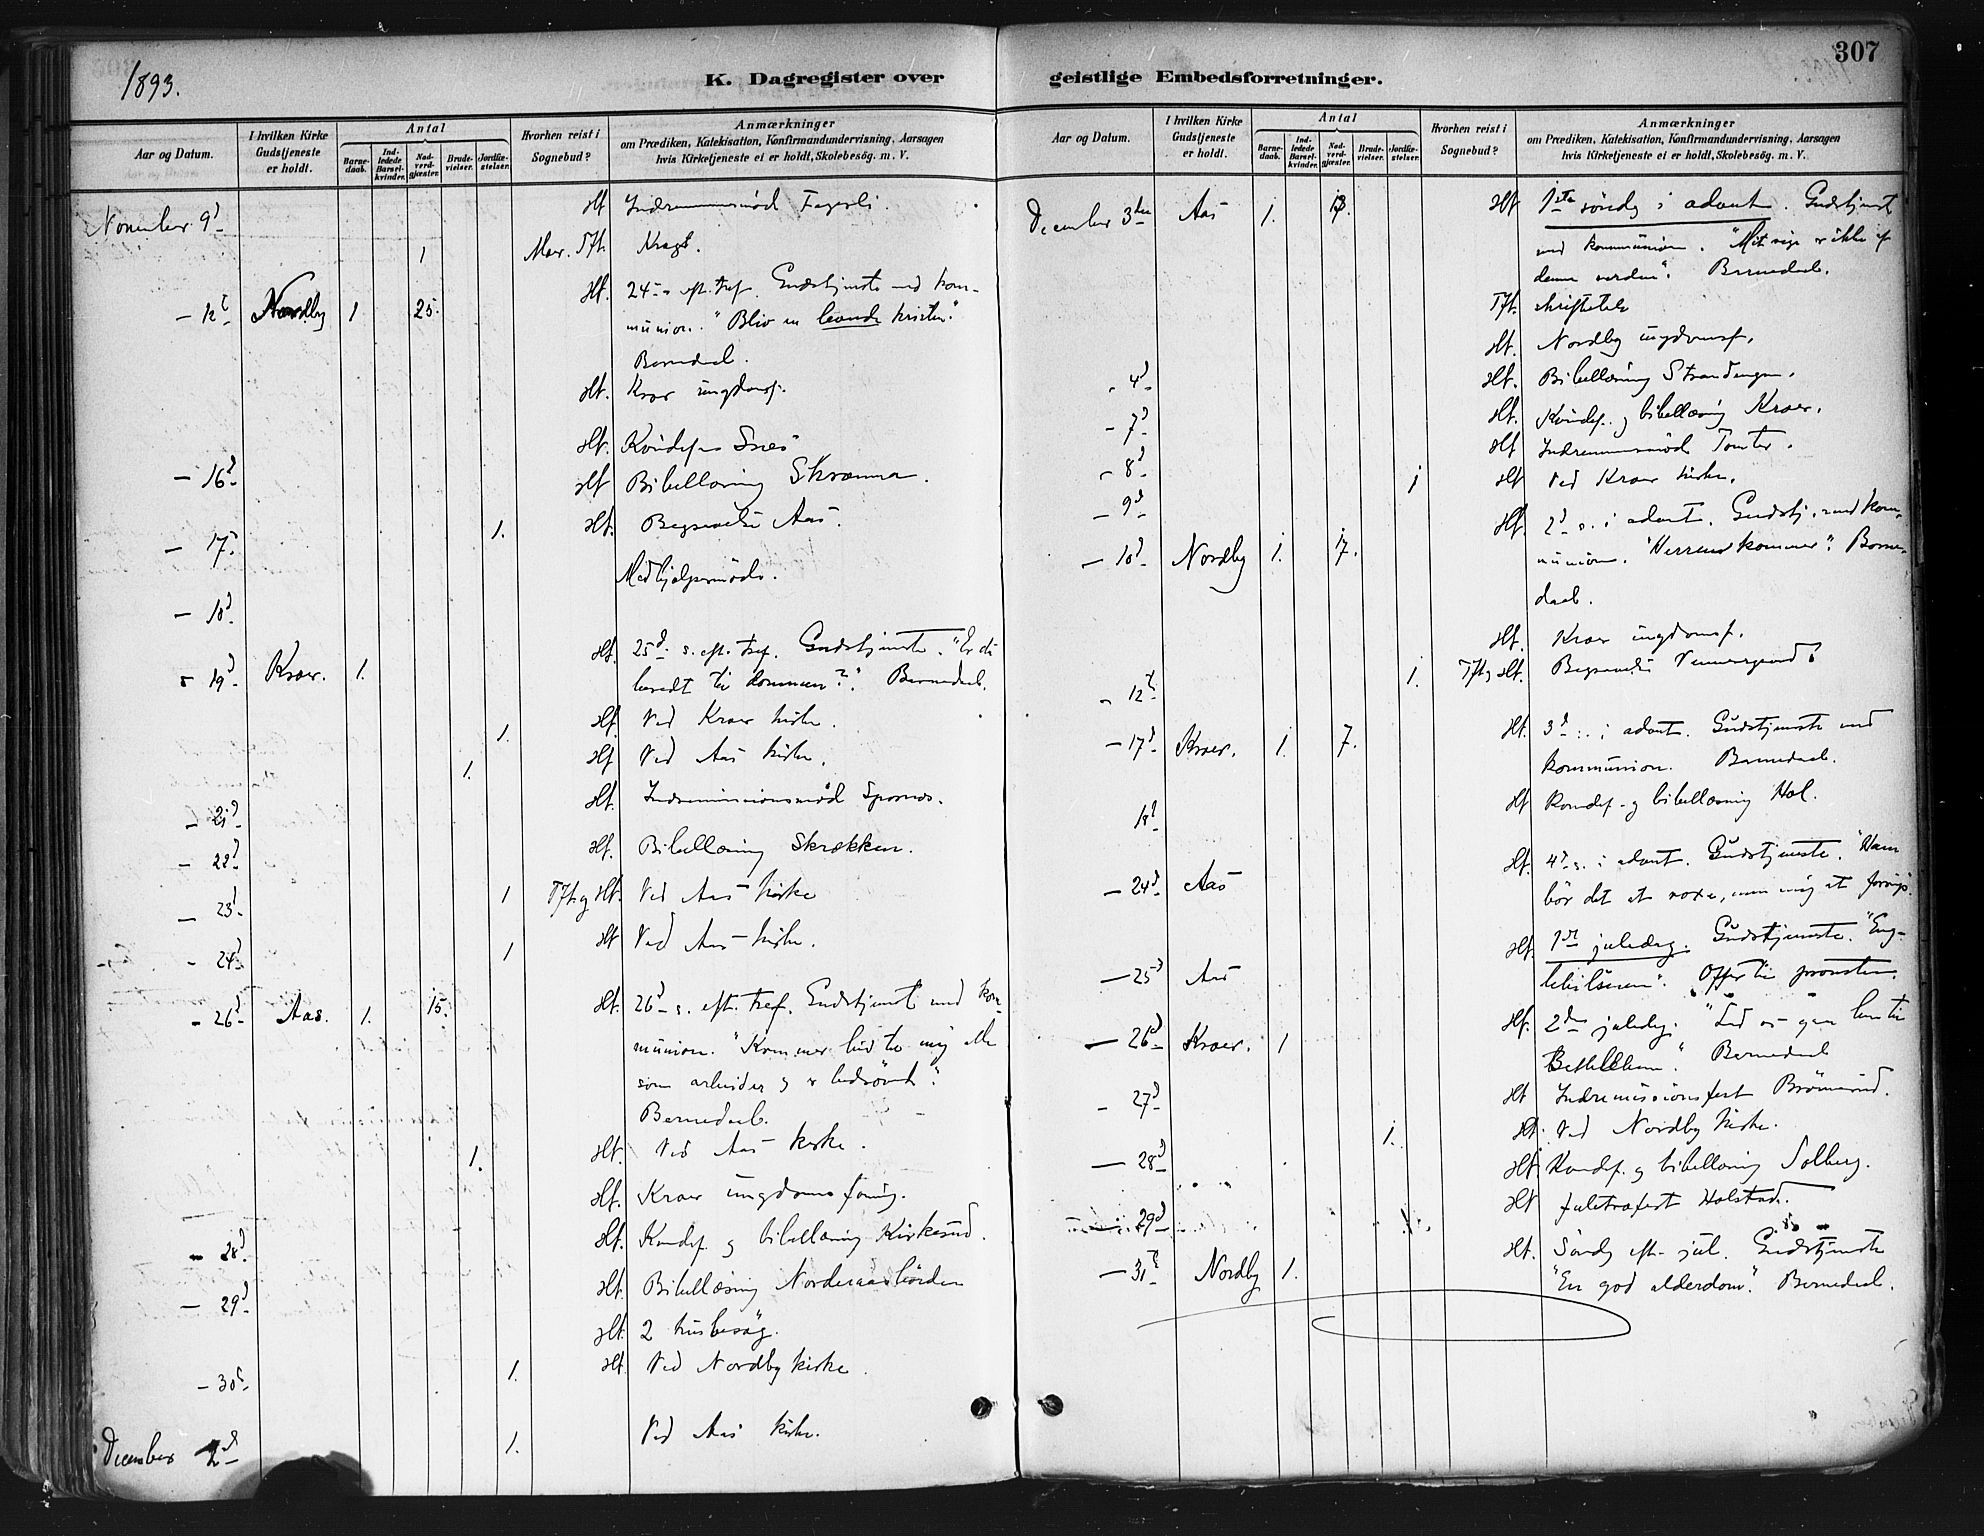 307
1893.
K. Dagregister over geistlige Embedsforretninger.
Aar og Datum.
I hvilken Kirke Gudstjeneste er holdt.
Antal
Barne-daab.
Ind-ledede Barsel-kvinder.
Nad-verd-gjæster.
Brude-vielser.
Jordfæ-stelser.
Hvorhen reist i Sognebud?
Anmærkninger
om Prædiken, Katekisation, Konfirmandundervisning, Aarsagen
hvis Kirketjeneste ei er holdt, Skolebesøg. m. V.
November 9d Hf Indremmsmöd Fagerli.
1 Mor. Tft. Krags.
- 12t Nordby 1 25. Hf. 24 s. eft. tref. Gudstjenste med kom-
munion. "Bliv en levende kristen".
Barnedaab.
Hf. Kroer ungdomsf.
Hf. Kvindef.
- 16d Hf Bibellæsning Skrænna.
- 17d 1. Hf. Begravelse Aas.
Medhjælpermöde.
- 18d
- 19d Kroer. 1. Hf. 25d s. eft. tref. Gudstjenste. "Er du
beredt til Kommen?". Barnedaab.
1. Hf. Ved Kroer kirke.
1. Hf Ved Aas kirke.
- 21d Hf. Indremissionsmöd
- 22d Hf. Bibellæsning Skrækken.
- 23d 1 Tft. og Hf. Ved Aas kirke
- 24d 1 Hf Ved Aas kirke.
- 26d Aas. 1. 15. Hf. 26d s. eft. tref. Gudstjenst med kom-
munion. "Kommer hid til mig alle
som arbeider og er
Barnedaab.
1. Hf. Ved Aas kirke.
Hf. Kroer ungdomsforening.
- 28d Hf. Kvindef. og bibellæsning Kirkerud.
- 29d Hf. Bibellæsning
Hf. 2 husbesøg.
- 30d 1. Hf. Ved Nordby kirke.
December 2d 1. Ved Aas kirke.
Aar og Datum.
I hvilken Kirke Gudstjeneste er holdt.
Antal
Barne-daab.
Ind-ledede Barsel-kvinder.
Nad-verd-gjæster.
Brude-vielser.
Jordfæ-stelser.
Hvorhen reist i Sognebud?
Anmærkninger
om Prædiken, Katekisation, Konfirmandundervisning, Aarsagen
hvis Kirketjeneste ei er holdt, Skolebesøg. m. V.
December 3die Aas 1. 13. Hf 1ste söndag i advent. Gudstjenst
med kommunion. "Mit rige er ikke af
denne verden". Barnedaab.
Tft. skriftetale
Hf. Nordby ungdomsf.
- 4d Hf. Bibellæsning Strandengen.
- 7d Hf. Kvindef. og bibellæsning Kroer.
- 8d Hf Indremmsmöd Tomter.
- 9d 1 Hf Ved Kroer kirke.
- 10d Nordby 1. 17. Hf. 2d s. i advent. Gudstj. med kom-
munion. "Herren kommer". Barne-
daab.
Hf. Kroer ungdomsf.
- 12t 1. Tft og Hf. Begravelse
- 17d Kroer. 1. 7. Hf. 3d s. i advent. Gudstjenste med
kommunion. Barnedaab.
18d Hf Kvindef. og bibellæsning Hol.
- 24d Aas Hf. 4d s. i advent. Gudstjenste. "Ham
bör det at voxe, men mig at forringes".
- 25d Aas Hf. 1ste juledag. Gudstjenste. "Eng-
lehilsenen". Offer til provsten.
- 26d Kroer. 1 Hf. 2den juledag. "Lad os gaa hen til
Bethlehem". Barnedaab
- 27d Hf Indremissionsfest
1. Hf. Ved Nordby kirke.
- 28d Hf. Kvindef. og bibellæsning Solberg.
- 29d Hf Juletræfest Holstad.
- 31t Nordby 1. Hf. Söndag eft. jul. Gudstjenste
"En god alderdom". Barnedaab.